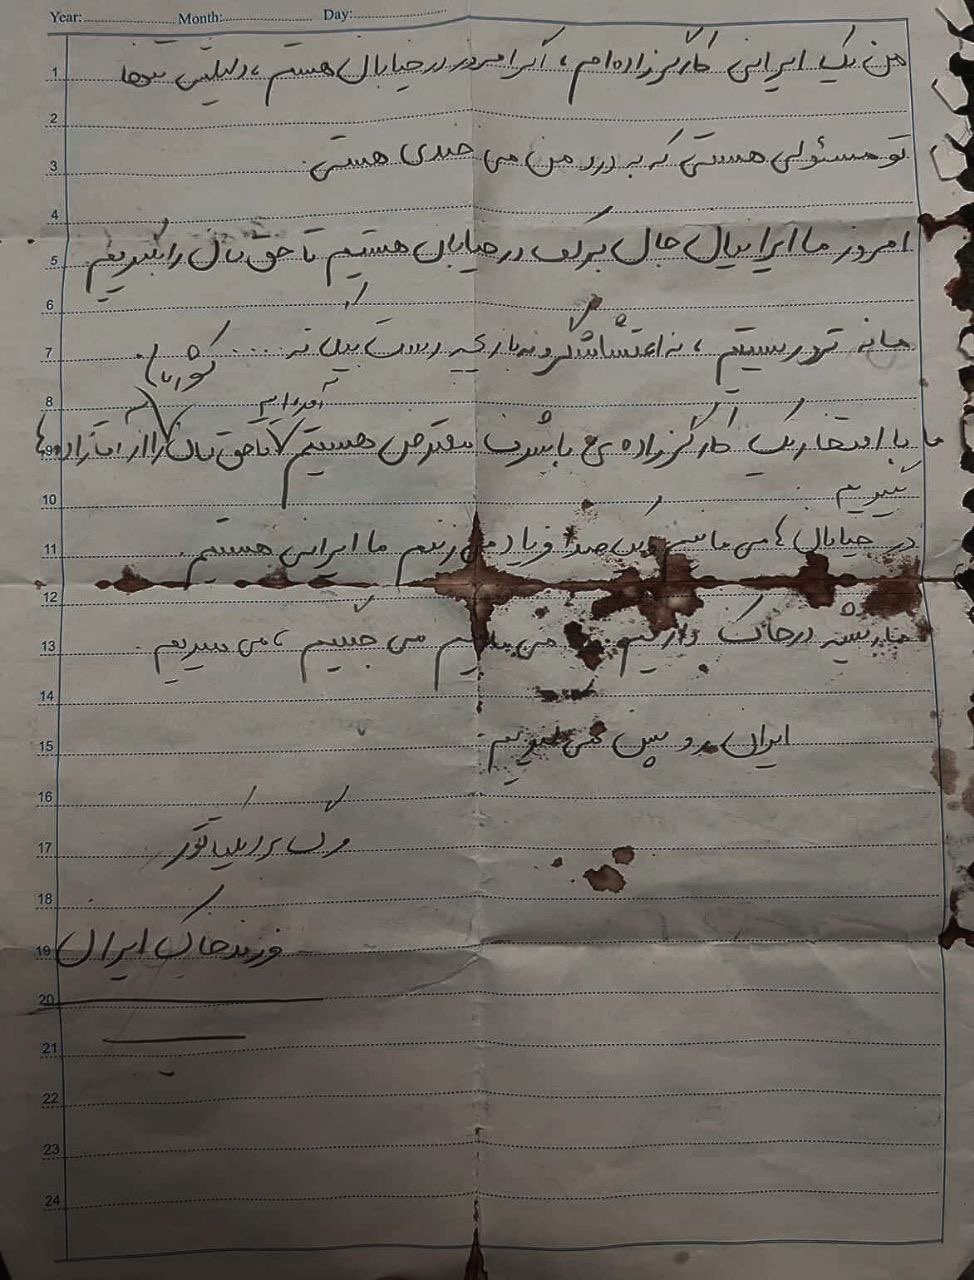 Year: Month: Day:
1
من یک ایرانی کارگرزاده‌ام، اگر امروز در خیابان هستم، دلیلش تنها
2
تو مسئولی هستی که به درد من می خندی هستی.
3
4
امروز ما ایرانیان جان برکف در خیابان هستیم تا حق مان را بگیریم
5
6
ما نه توریستیم، نه اغتشاشگر و نه بازیچه دست بیگانه....
7
8
آمده‌ایم
ما با افتخار یک کارگرزاده ی با شرف معترض هستیم تا حق مان را از آقازاده ها
9
بگیریم
10
در خیابان ها می مانیم و یک صدا فریاد می زنیم ما ایرانی هستیم.
11
12
ما ریشه در خاک داریم می مانیم می جنگیم، می میریم.
13
14
ایران رو پس می گیریم
15
16
مرگ بر دیکتاتور
17
18
فرزند خاک ایران
19
20
21
22
23
24